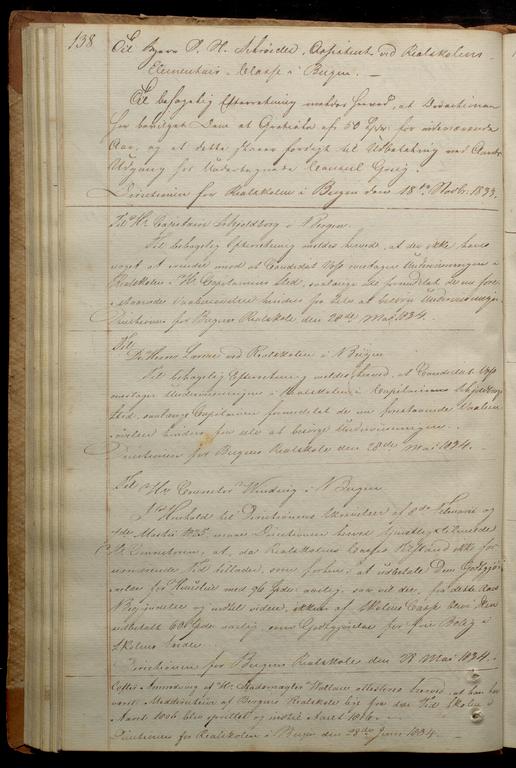 138
Til Herr P. H. Schrøder, Assistent ved Realskolens
Elementair-Classe i Bergen.
Til behagelig Efterretning meldes herved, at Directionen
har bevilget Dem et Gratiale af 50 Spdr for indeværende
Aar, og at dette haves forlangt til Udbetaling ved Aarets
Udgang hos Undertegnede Consul Grieg.
Directionen for Realskolen i Bergen den 18de Novbr. 1833.
Til Hr Capitain Schjoldborg i Bergen.
Til behagelig Efterretning meldes herved, at der ikke haves
noget at erindre mod at Candidat Voss overtager Underviisningen i
Realskolen i Hr. Capitainens Sted, saalænge De formedelst de nu fore-
staaende Vaabenøvelser hindres fra selv at besørge Underviisningen.
Directionen for Bergens Realskole den 28de Mai 1834.
Til
De Herrer Lærere ved Realskolen i Bergen
Til behagelig Efterretning meldes herved, at Candidat Voss
overtager Underviisningen i Realskolen i Capitainens Schjoldborgs
Sted, saalænge Capitainen formedelst de nu forestaaende Vaaben-
øvelser hindres fra selv at besørge Underviisningen.
Directionen for Bergens Realskole den 28de Mai 1834.
Til Hr. Conrector Winding i Bergen
I Henhold til Directionens Skrivelser af 8de Februar og
4de Martii 1825, maae Directionen herved tilmelde
Hr. Conrectoren, at, da Realskolens Casses Tilstand ikke for
nærværende Tid tillader, som forhen, at udbetale Dem Godtgjø-
relse for Huusleie med 96 Spdr aarlig, saa vil der, fra dette Aars
Begyndelse og indtil videre, af Skolens Casse blive Dem
udbetalt 60 Spdr aarlig, som Godtgjørelse for frie Bolig i
Skolens
Directionen for Bergens Realskole den 28 Mai 1834.
Efter Anmodning af Hr. Stadsmægler Wallace attesteres herved, at han har
været Meddirecteur af Bergens Realskole lige fra den Tid Skolen i
Aaret 1806 blev oprettet og indtil Aaret 1816.
Directionen for Realskolen i Bergen den 28de Juni 1834.